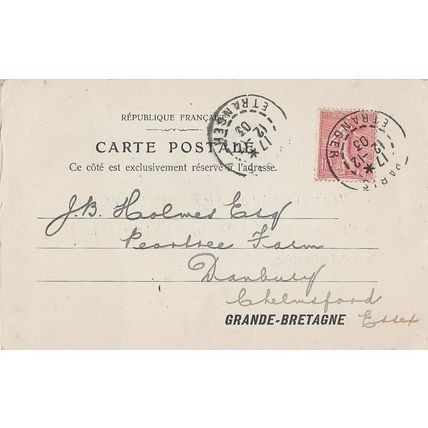 RÉPUBLIQUE FRANÇAISE
CARTE POSTALE
Ce côté est exclusivement réservé à l'adresse.
ETRANGER
17
12
03
PARIS
ETRANGER
17
12
03
J.B. Holmes Esq
Peartree Farm
Danbury
Chelmsford
GRANDE-BRETAGNE Essex